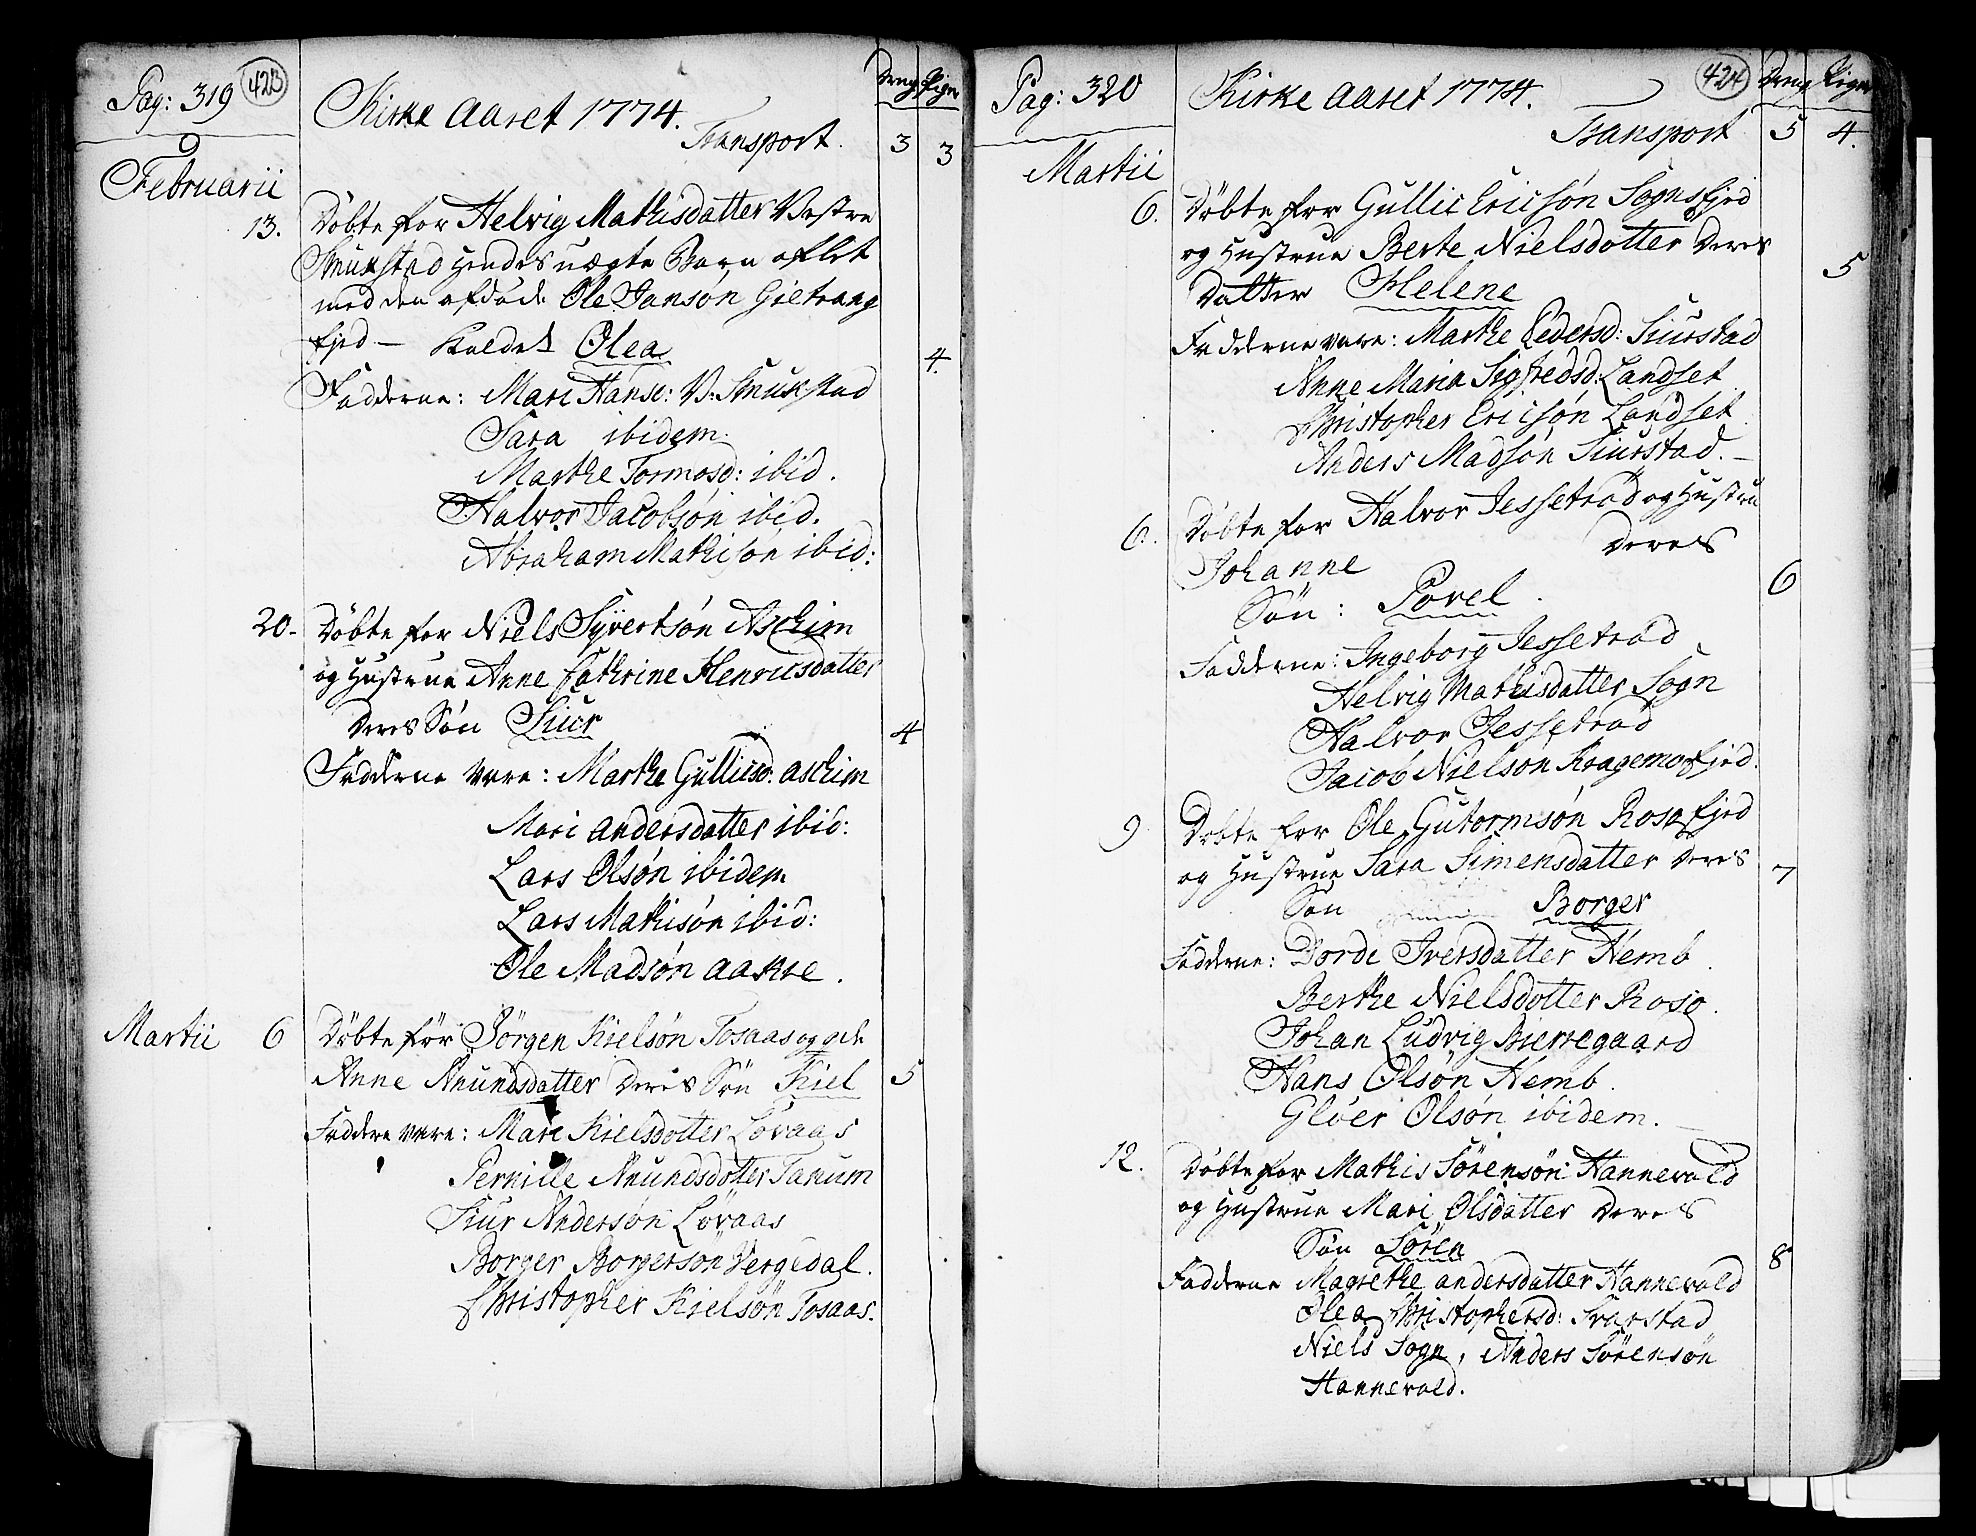 Pag: 319 423
Kirke Aaret 1774.
Dreng Piger
Transport. 3 3
Februarii
13. Döbte for Helvig Mathisdatter Vestre
Smukstad hendes uægte Barn aflet
med den afdöde Ole Jansön Gietrang
fjed — kaldet Olea 4.
Fadderne: Mari Hansd: V. Smukstad
Sara ibidem
Marthe Tormosd: ibid.
Halvor Jacobsön ibid.
Abraham Mathisön ibid:
20. Döbte for Niels Syvertsön Aschim
og Hustrue Anne Cathrine Henricsdatter
Deres Sön Siur 4
Fadderne vare: Marthe Gullicsd: Aschim
Mari Andersdatter ibid:
Lars Olsön ibidem
Lars Mathisön ibid:
Ole Madsön Aakre.
Martii 6 Döbte för Jörgen Kielsön Tosaas og
Anne Anundsdatter Deres Sön Kiel 5
Faddere vare: Mari Kielsdotter Lövaas
Pernille Anundsdotter Tanum
Siur Andersön Lövaas
Borger Borgersön Vergedal.
Christopher Kielsön Tosaas.
Pag: 320 424
Kirke Aaret 1774.
Dreng Piger
Transport 5 4.
Martii
6. Döbte for Gullic Ericsön Sognsfjed
og Hustrue Berte Nielsdotter Deres
Datter Helene 5
Fadderne vare: Marthe Pedersd: Siurstad
Anne Maria Sigfredsd: Landset
Christopher Ericsön Landset
Anders Madsön Siurstad. —
6. Döbte for Halvor Jessetröd og Hustru
Johanne Deres
Sön: Povel. 6
Fadderne: Ingeborg Jessetröd
Helvig Mathisdatter Sogn
Halvor Jessetröd
Jacob Nielsön Kragemofjed.
9 Döbte for Ole Gutormsön Rosafjed
og Hustrue Sara Simensdatter Deres 7
Sön Borger
Fadderne: Dorde Iversdatter Nemb.
Berthe Nielsdotter Roso.
Johan Ludvig Bierregaard
Hans Olsön Nemb.
Glöer Olsön ibidem.
12. Döbte for Mathis Sörensön Hannevold
og Hustrue Mari Olsdatter Deres
Sön Sören 8
Fadderne Magrethe Andersdatter Hannevold
Olea Christophersd: Svarstad
Niels Sogn, Anders Sörensön
Hannevold.